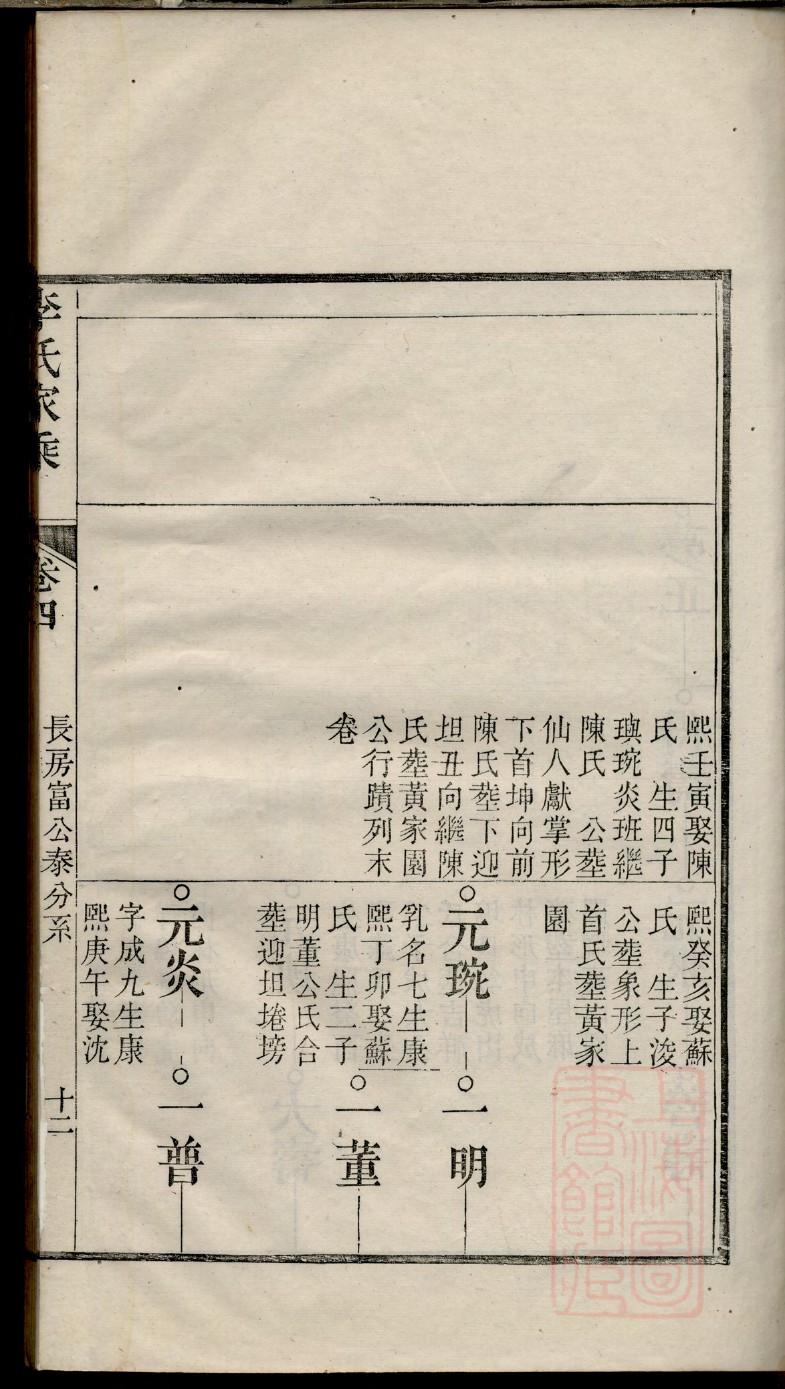 熙壬寅娶陳
氏　生四子
璵琬炎班繼
陳氏　公塟
仙人獻掌形
下首坤向前
陳氏塟下迎
坦丑向繼陳
氏塟黃家園
公行蹟列末
卷
熙癸亥娶蘇
氏　生子浚
公塟象形上
首氏塟黃家
園
元琬
乳名七生康
熙丁卯娶蘇
氏　生二子
明董公氏合
塟迎坦埢塝
元炎
字成九生康
熙庚午娶沈
一明
一董
一普
李氏家乘
卷四
長房富公泰分系
十二
上海圖
書館藏